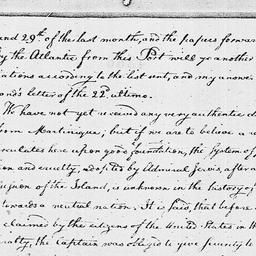 and 29th of the last month, and the papers forwar
by the Atlantic from this Port will go another
ations according to the list sent, and my answer
ond's letter of the 22d ultimo.
We have not yet received any very authentic d
from Martinique; but if we are to believe a r
irculates here upon good foundation, the system of
on and cruelty, adopted by Admiral Jervis, after
of the Island, is unknown in the history of
towards a neutral nation. It is said, that before
claimed by the citizens of the United States in
the Captain was obliged to give security to